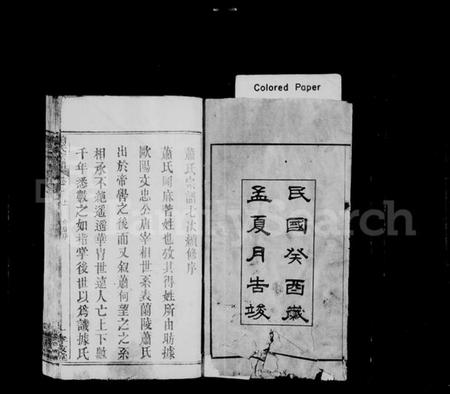 Colored Paper
民國癸酉歲
孟夏月告竣
蕭氏宗譜七次續修序
蕭氏固麻著姓也攷其得姓所由昉據
歐陽文忠公唐宰相世系表蘭陵蕭氏
出於帝嚳之後而又叙蕭何望之之系
相承不絶遥遥華胄世遠人亡上下數
千年悉數之如指掌後世以為譏據氏